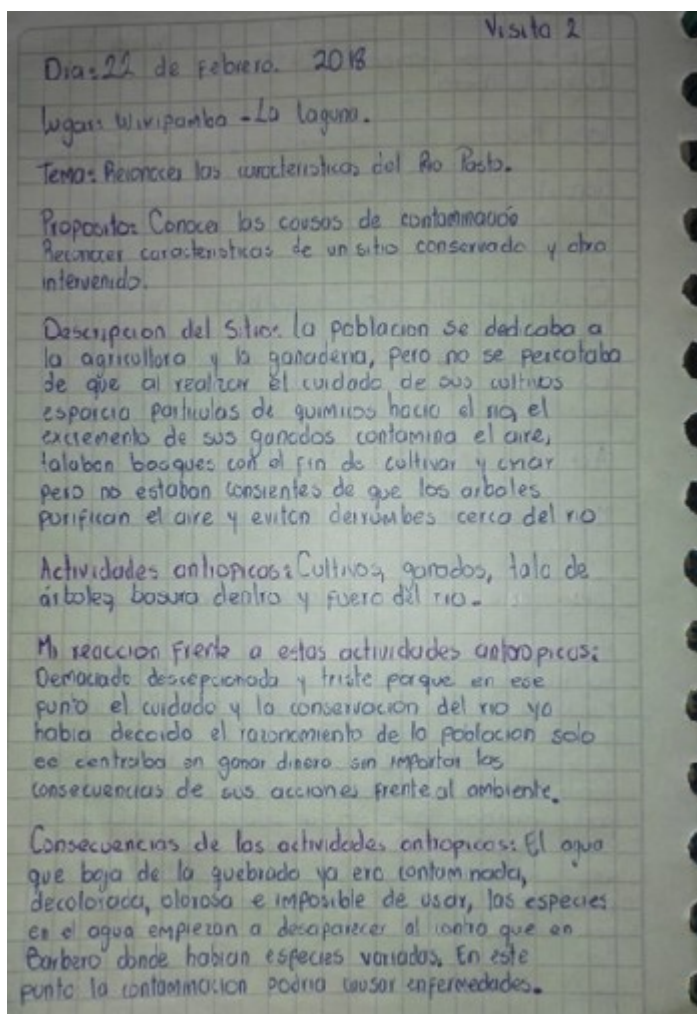 Visita 2
Dia: 22 de Febrero. 2018
Lugar: Wiripamba - La laguna.
Tema: Reconocer las caracteristicas del Rio Pasto.
Proposito: Conocer las causas de contaminacio
Reconocer caracteristicas de un sitio conservado y otro
intervenido.
Descripcion del Sitio: la poblacion se dedicaba a
la agricultora y la ganaderia, pero no se percataba
de que al realizar el cuidado de sus cultivos
esparcia particulas de quimicos hacia el rio, el
excremento de sus ganados contamina el aire,
talaban bosques con el fin de cultivar y criar
pero no estaban consientes de que los arboles
purifican el aire y eviten derrumbes cerca del rio
Actividades antropicas: Cultivos, ganados, tala de
árboles, basura dentro y fuera del rio.
Mi reaccion Frente a estas actividades antropicas:
Demaciado descepcionada y triste porque en ese
punto el cuidado y la conservacion del rio ya
habia decaido el razonamiento de la poblacion solo
se centraba en ganar dinero sin importar las
consecuencias de sus acciones frente al ambiente.
Consecuencias de las actividades antropicas: El agua
que baja de la quebrada ya era contaminada,
decolorada, olorosa e imposible de usar, las especies
en el agua empiezan a desaparecer al contra que en
Barbero donde habian especies variadas. En este
punto la contaminacion podria causar enfermedades.